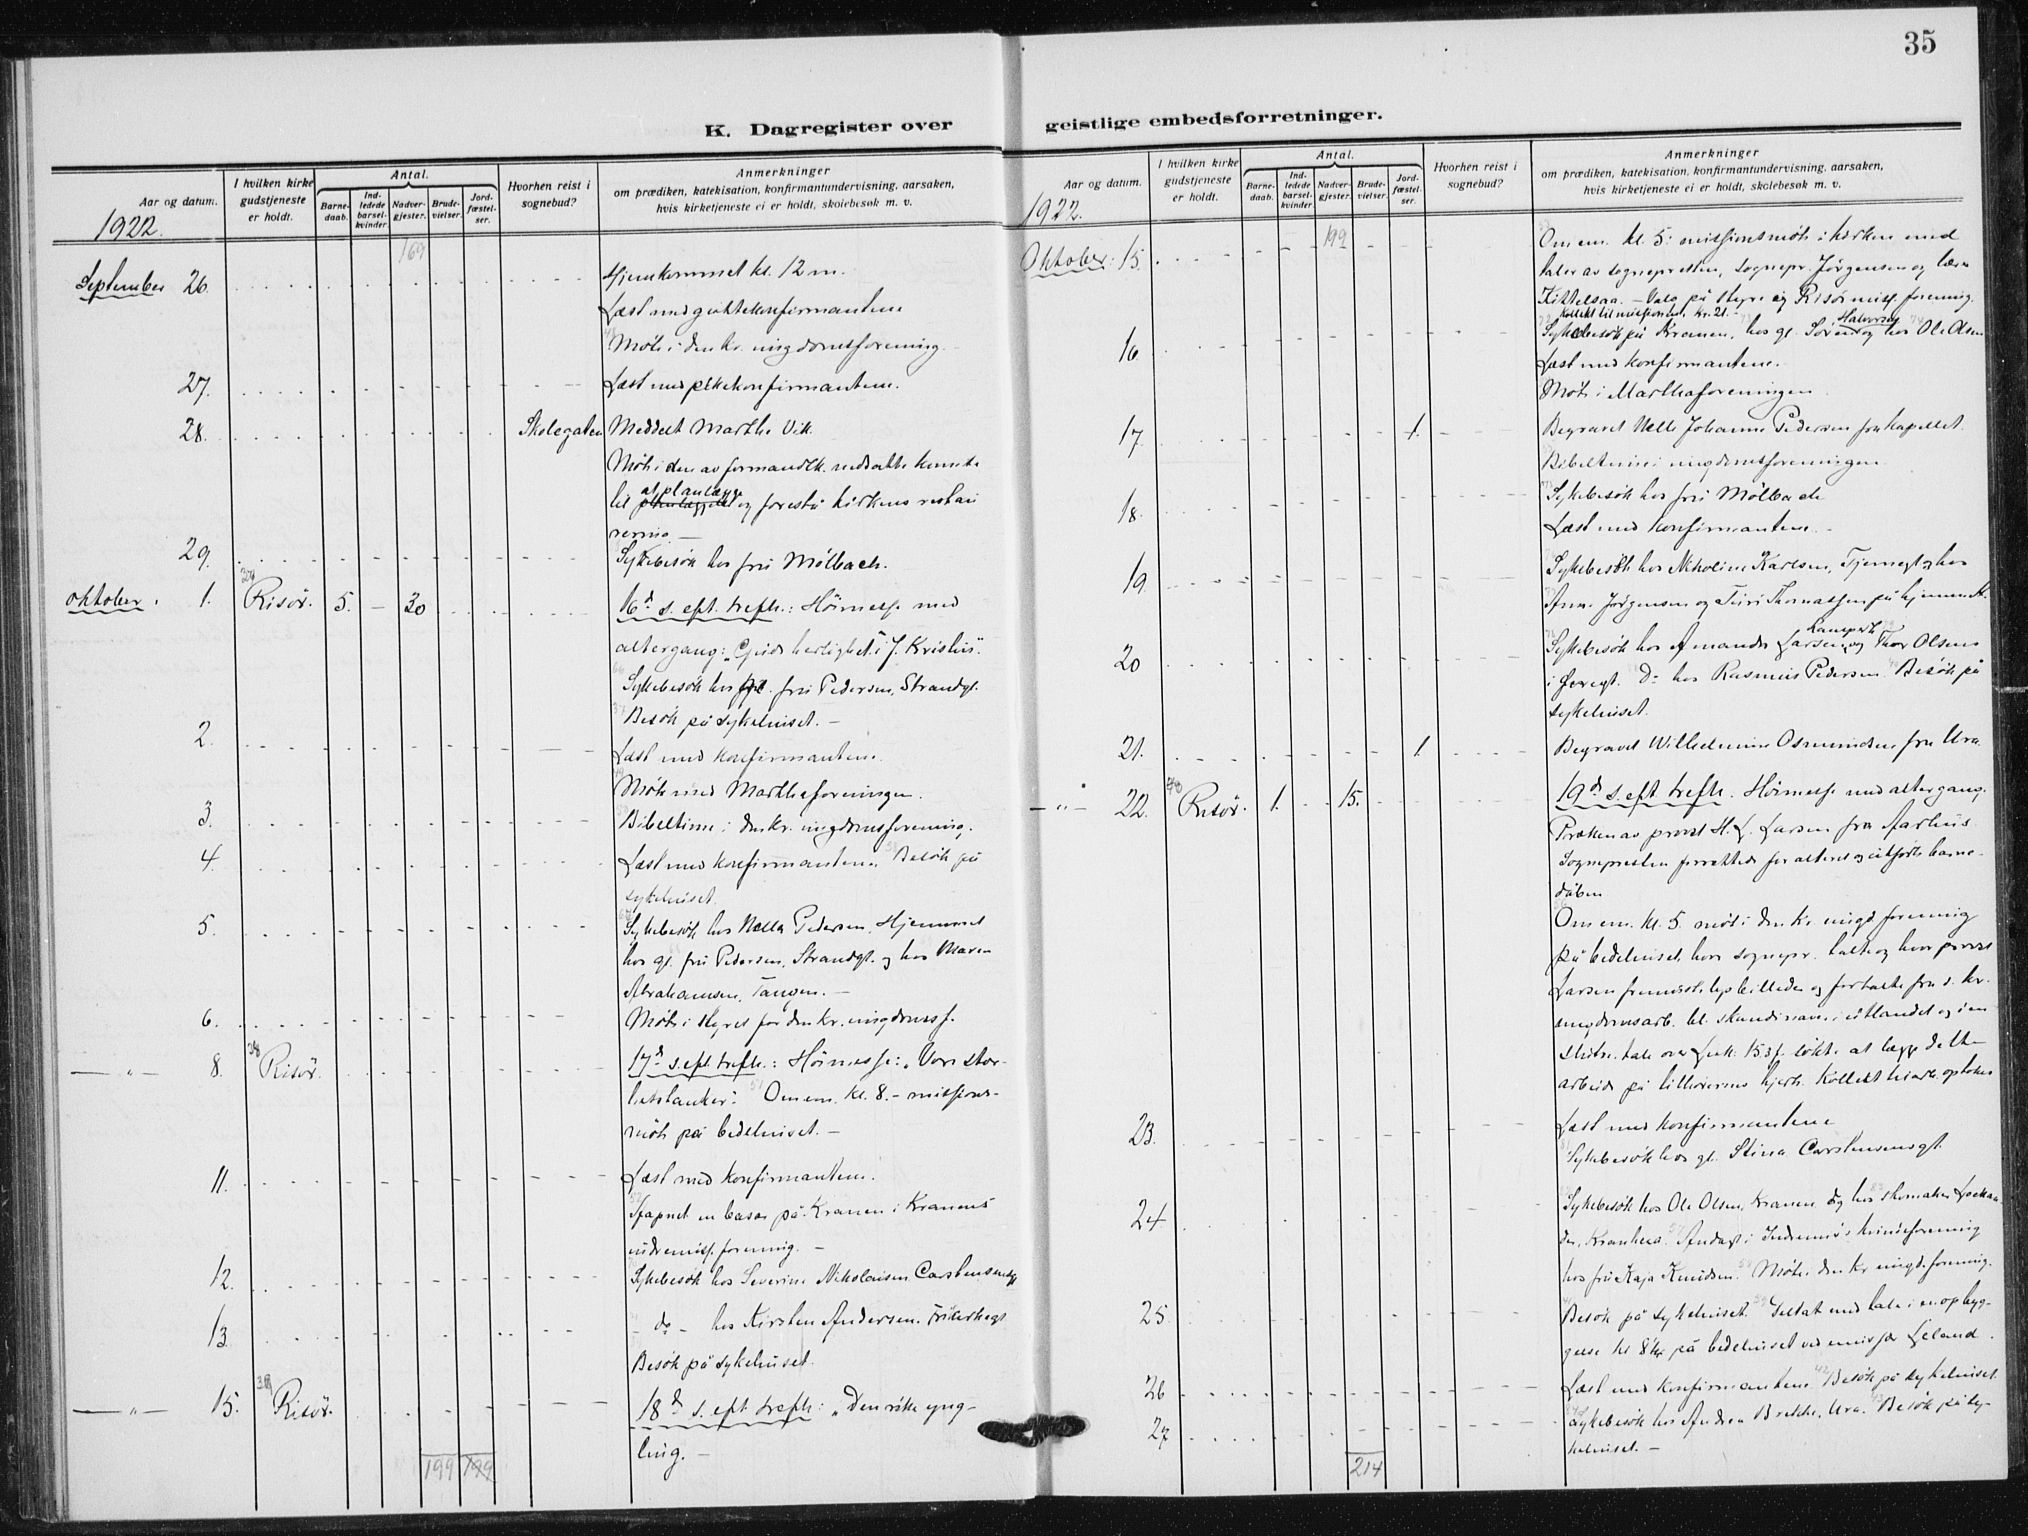 35
K. Dagregister over
geistlige embedsforretninger.
Aar og datum.
I hvilken kirke gudstjeneste er holdt.
Antal.
Barne-daab.
Ind-ledede barsel-kvinder.
Nadver-gjester.
Brude-vielser.
Jord-fæstel-ser.
Hvorhen reist i sognebud?
Anmerkninger
om prædiken, katekisation, konfirmantundervisning, aarsaken,
hvis kirketjeneste ei er holdt, skolebesøk m. v.
1922.
169
September 26. Hjemkommet kl. 12 m.
Læst med guttekonfirmantene
Møte i den kr. ungdomsforening.
27. Læst med pikekonfirmantene.
28. Skolegaten Meddelt Marthe Vik.
Møte i den av formandsk. nedsatte komite
til at planlægge og forestå kirkens restau
rering. —
29. Sykebesøk hos fru Mölbach.
Oktober. 1. Risör. 5. — 30 16d s. eft. trefh.: Höimesse med
altergang: „Guds herlighet i J. Kristus".
Sykebesøk hos fru Pedersen, Strandgt.
Besök på sykehuset. —
2. Læst med konfirmantene.
Møte med Marthaforeningen.
3. Bibeltime i den kr. ungdomsforening.
4. Læst med konfirmantene. Besök på
sykehuset.
5. Sykebesök hos Nella Pedersen, Hjemmet
hos gl. fru Pedersen, Strandgt. og hos Maren
Abrahamsen, Tangen. —
6. Møte i styret for den kr. ungdomsf.
— „ — 8. 38 Risör. 17d s. eft. trefh.: Höimesse: „Vore stor-
hetstanker". Om em. kl. 8. – missions-
møte på bedehuset. —
11. Læst med konfirmantene.
Åapnet en basar på Kranen i Kranens
indremisj. forening. —
12. Sykebesök hos Severine Nikolaisen Carstensensgt
13. – do – hos Kirsten Andersen.
Besök på sykehuset.
— „ — 15. 39 Risör. 18d s. eft. trefh: „Den rike yng-
ling. —
199 199
Aar og datum.
I hvilken kirke gudstjeneste er holdt.
Antal.
Barne-daab.
Ind-ledede barsel-kvinder.
Nadver-gjester.
Brude-vielser.
Jord-fæstel-ser.
Hvorhen reist i sognebud?
Anmerkninger
om prædiken, katekisation, konfirmantundervisning, aarsaken,
hvis kirketjeneste ei er holdt, skolebesøk m. v.
1922.
199
Oktober. 15. Om em. kl. 5: missionsmøte i kirken med
taler av sognepresten, sognepr. Jörgensen og lærer
Kittelsaa. – Valg på styre i Risör misj. forening.
Kollekt til missionen, kr. 21. –
16. Sykebesök på Kranen, hos gl. Soren Halvorsen og hos Ole Olsen
Læst med konfirmantene.
Møte i Marthaforeningen
17. 1. Begravet Nelle Johanne Pedersen fra kapellet.
Bibeltime i ungdomsforeningen
18. Sykebesök hos fru Mölbach
Læst med konfirmantene. –
19. Sykebesök hos Nikoline Karlsen, Tjernegt og hos
Anne Jörgensen og Turi Thomassen på hjemmet.
20 Sykebesök hos Amanda Larsen, og Thor Olsens
Do hos Rasmus Pedersen. Besök på
sykehuset.
21. 1. Begravet Wilhelmine Osmundsen fra Ura.
— „ — 22. 40 Risör. 1. 15. 19d s. eft. trefh. Höimesse med altergang.
Præken av provst H. L. Larsen fra Aarhus.
Sognepresten forrettede for alteret og utförte barne-
dåben
Om em. kl. 5. møte i den kr. ungd. forening
på bedehuset, hvor sognepr. talte og hvor provst
Larsen fremviste lysbilleder og fortalte fra s. kr.
ungdomsarb. bl. skandinaver i utlandet og i en
sluttn. tale over Luk. 15 3f. søkte at lægge dette
arbeide på tilhörernes hjerte. Kollekt
23. Læst med konfirmantene
Sykebesök hos gl. Stina Carstensensgt.
24 Sykebesök hos Ole Olsen, Kranen og hos skomaker
Andagt i Indremis's kvindeforening
hos fru Kaja Knudsen. Møte i den kr. ungd. forening.
25. Besök på sykehuset. Deltat med tale i en opbyg-
gelse kl 8 1/4 på bedehuset ved emissær Leland.
26 Læst med konfirmantene. Besök på sykehuset.
27 Sykebesök hos Andrea Brekke, Ura. Besök på sy-
kehuset. –
214